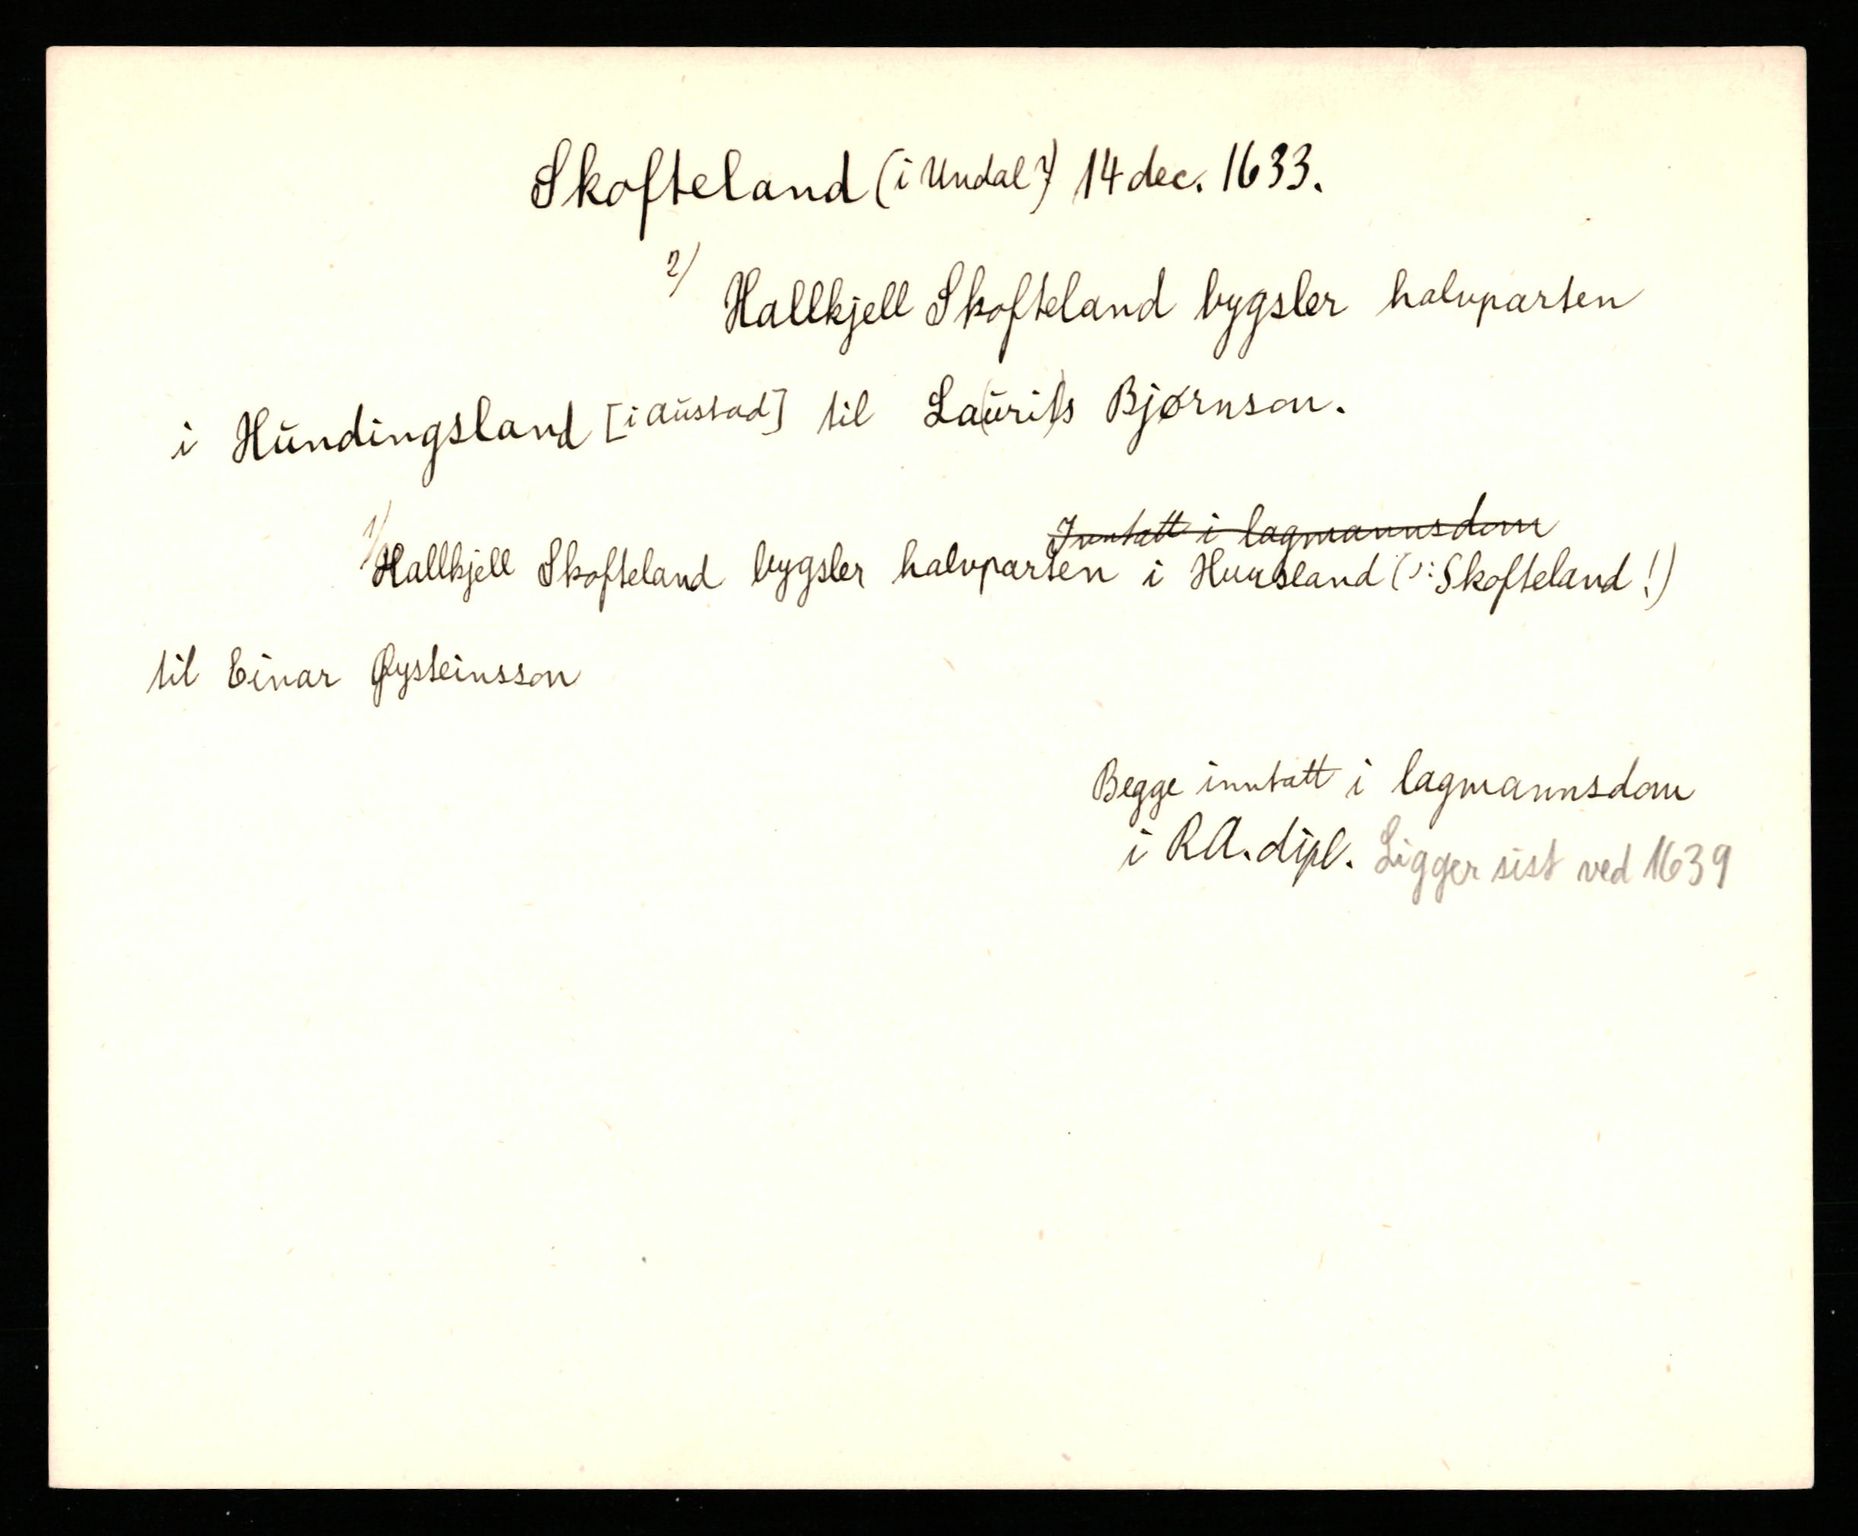 Skofteland (i Undal?) 14 dec. 1633.
2/ Hallkjell Skofteland bygsler halvparten
i Hundingsland [i Austad] til La(uri)ts Bjørnson.
Inntatt i lagmannsdom
1/ Hallkjell Skofteland bygsler halvparten i Hunsland (ɔ: Skofteland!)
til Einar Øysteinsson
Begge inntatt i lagmannsdom
i RA. dipl. Ligger sist ved 1639